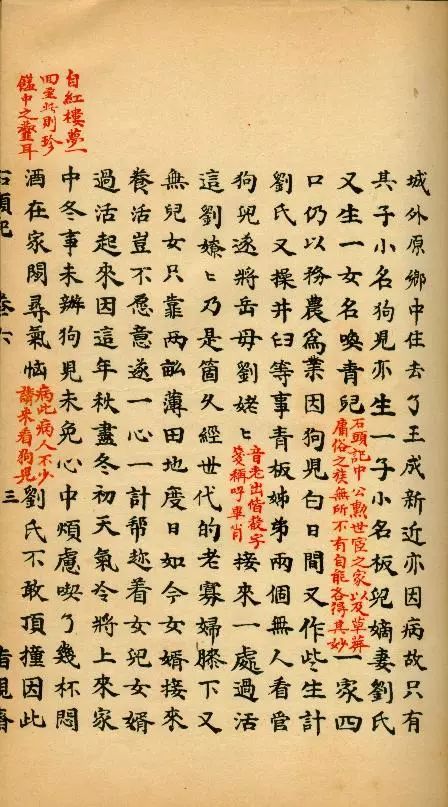 城外原鄉中住去了王成新近亦因病故只有
其子小名狗兒亦生一子小名板兒嫡妻劉氏
又生一女名喚青兒
石頭記中公勳世宦之家以及草莽
庸俗之族無所不有自能各得其妙
一家四
口仍以務農爲業因狗兒白日間又作些生計
劉氏又操井臼等事青板姊弟兩個無人看管
狗兒遂將岳母劉姥〻
音老出偕聲字
箋稱呼畢肖
接來一處過活
這劉嫽〻乃是箇久經世代的老寡婦膝下又
無兒女只靠兩畝薄田地度日如今女婿接來
養活豈不愿意遂一心一計幫趂着女兒女婿
過活起來因這年秋盡冬初天氣冷將上來家
自紅樓夢一
回至此則珍
饈中之虀耳
中冬事未辦狗兒未免心中煩慮喫了幾杯悶
酒在家閒尋氣惱
病此病人不少
請來看狗兒
劉氏不敢頂撞因此
石頭記 卷六 三 脂硯齋